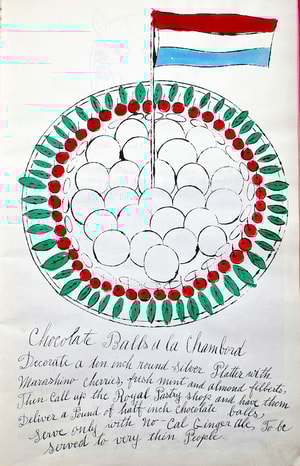 Chocolate Balls a la Chambord
Decorate a ten inch round Silver Platter with
Marashino cherries, fresh mint and almond filberts.
Then Call up the Royal Pastry shop and have them
Deliver a Pound of half inch chocolate balls,
Serve only with No-Cal Gingerale, To be
Served to very thin People